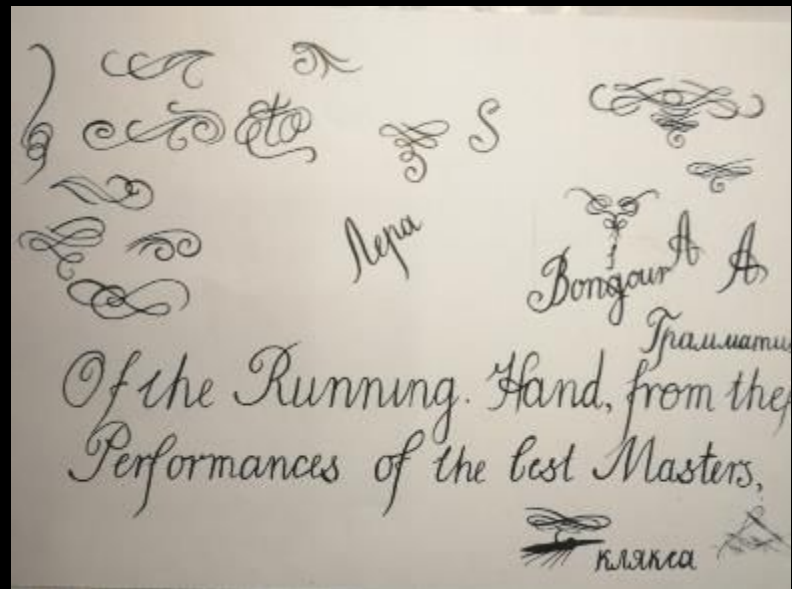 &to
S
Лера
Bongour
A
A
Of the Running. Hand, from the
Performances of the best Masters,
клякса